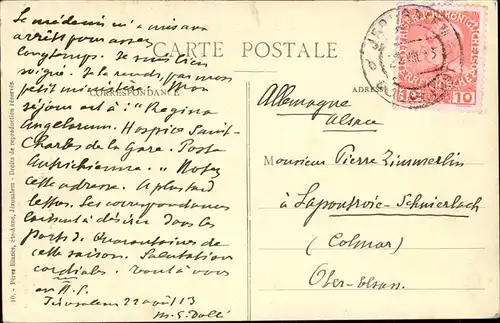 CARTE POSTALE
CORRESPONDANCE
Le médecin m'a mis aux
arrêts pour assez
longtemps. Je suis bien
soigné. Je le rends, par mon
petit ministère. Mon
séjour est à : "Regina
Angelorum. Hospice Saint-
Charles de la Gare. Poste
Autrichienne." Notez
cette adresse. A plus tard
les
correspondances
à désirer dans les
ports de Quarantaines de
cette saison. Salutations
cordiales. tout à vous
en N.S.
Jérusalem 22 août 13
M.S. Dollé
ADRESSE
Allemagne
Alsace
Monsieur Pierre Zimmerlin
à Lapoutroie-Schnierlach
(Colmar)
Ober-Elsass
10 10
10. - Pères Blancs, Ste-Anne, Jérusalem - Droits de reproduction réservés.